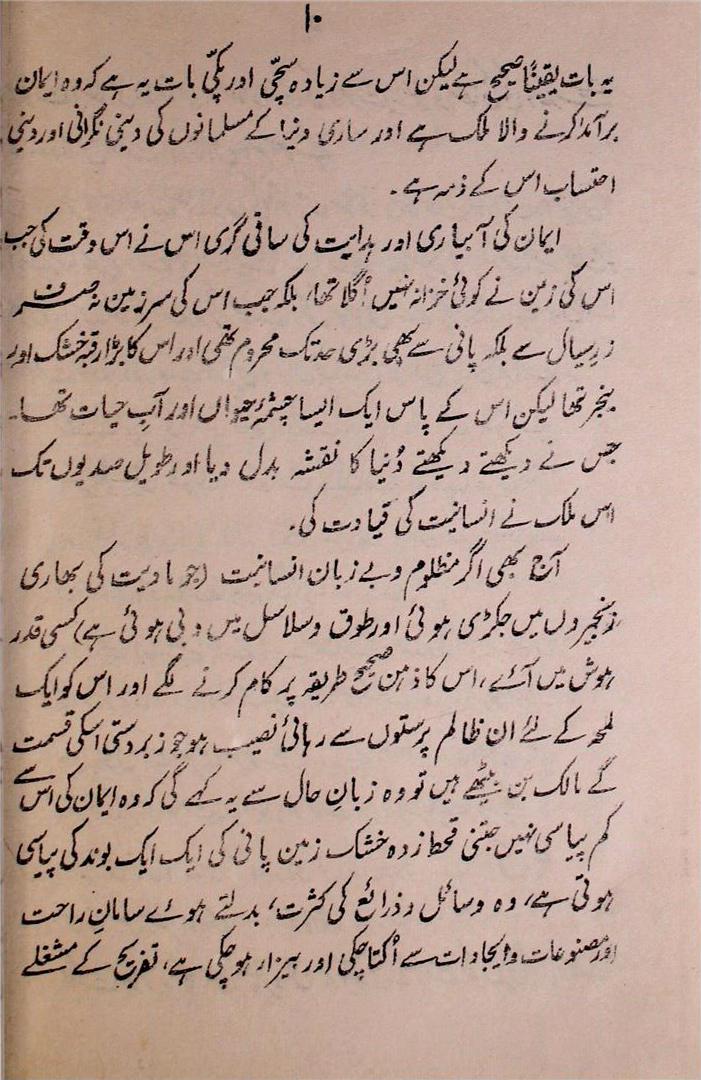 ۱۰
یہ بات یقیناً صحیح ہے لیکن اس سے زیادہ سچّی اور پکّی بات یہ ہے کہ وہ ایمان
برآمد کرنے والا ملک ہے اور ساری دنیا کے مسلمانوں کی دینی نگرانی اور دینی
احتساب اس کے ذمہ ہے۔
ایمان کی آبیاری اور ہدایت کی ساقی گری اس نے اس وقت کی جب
اس کی زمین نے کوئی خزانہ نہیں اُگلا تھا، بلکہ جب اس کی سرزمین نہ صرف
زرِ سیال سے بلکہ پانی سے بھی بڑی حد تک محروم تھی اور اس کا بڑا رقبہ خشک اور
بنجر تھا لیکن اس کے پاس ایک ایسا چشمۂ حیواں اور آبِ حیات تھا۔
جس نے دیکھتے دیکھتے دُنیا کا نقشہ بدل دیا اور طویل صدیوں تک
اس ملک نے انسانیت کی قیادت کی۔
آج بھی اگر مظلوم و بے زبان انسانیت (جو مادیت کی بھاری
زنجیروں میں جکڑی ہوئی اور طوق و سلاسل میں دبی ہوئی ہے) کسی قدر
ہوش میں آئے، اس کا ذہن صحیح طریقہ پر کام کرنے لگے اور اس کو ایک
لمحہ کے لئے ان ظالم پرستوں سے رہائی نصیب ہو جو زبردستی اسکی قسمت
کے مالک بن بیٹھے ہیں تو وہ زبانِ حال سے یہ کہے گی کہ وہ ایمان کی اس سے
کم پیاسی نہیں جتنی قحط زدہ خشک زمین پانی کی ایک ایک بوند کی پیاسی
ہوتی ہے، وہ وسائل و ذرائع کی کثرت، بدلتے ہوئے سامانِ راحت
اور مصنوعات و ایجادات سے اُکتا چکی اور بیزار ہو چکی ہے، تفریح کے مشغلے